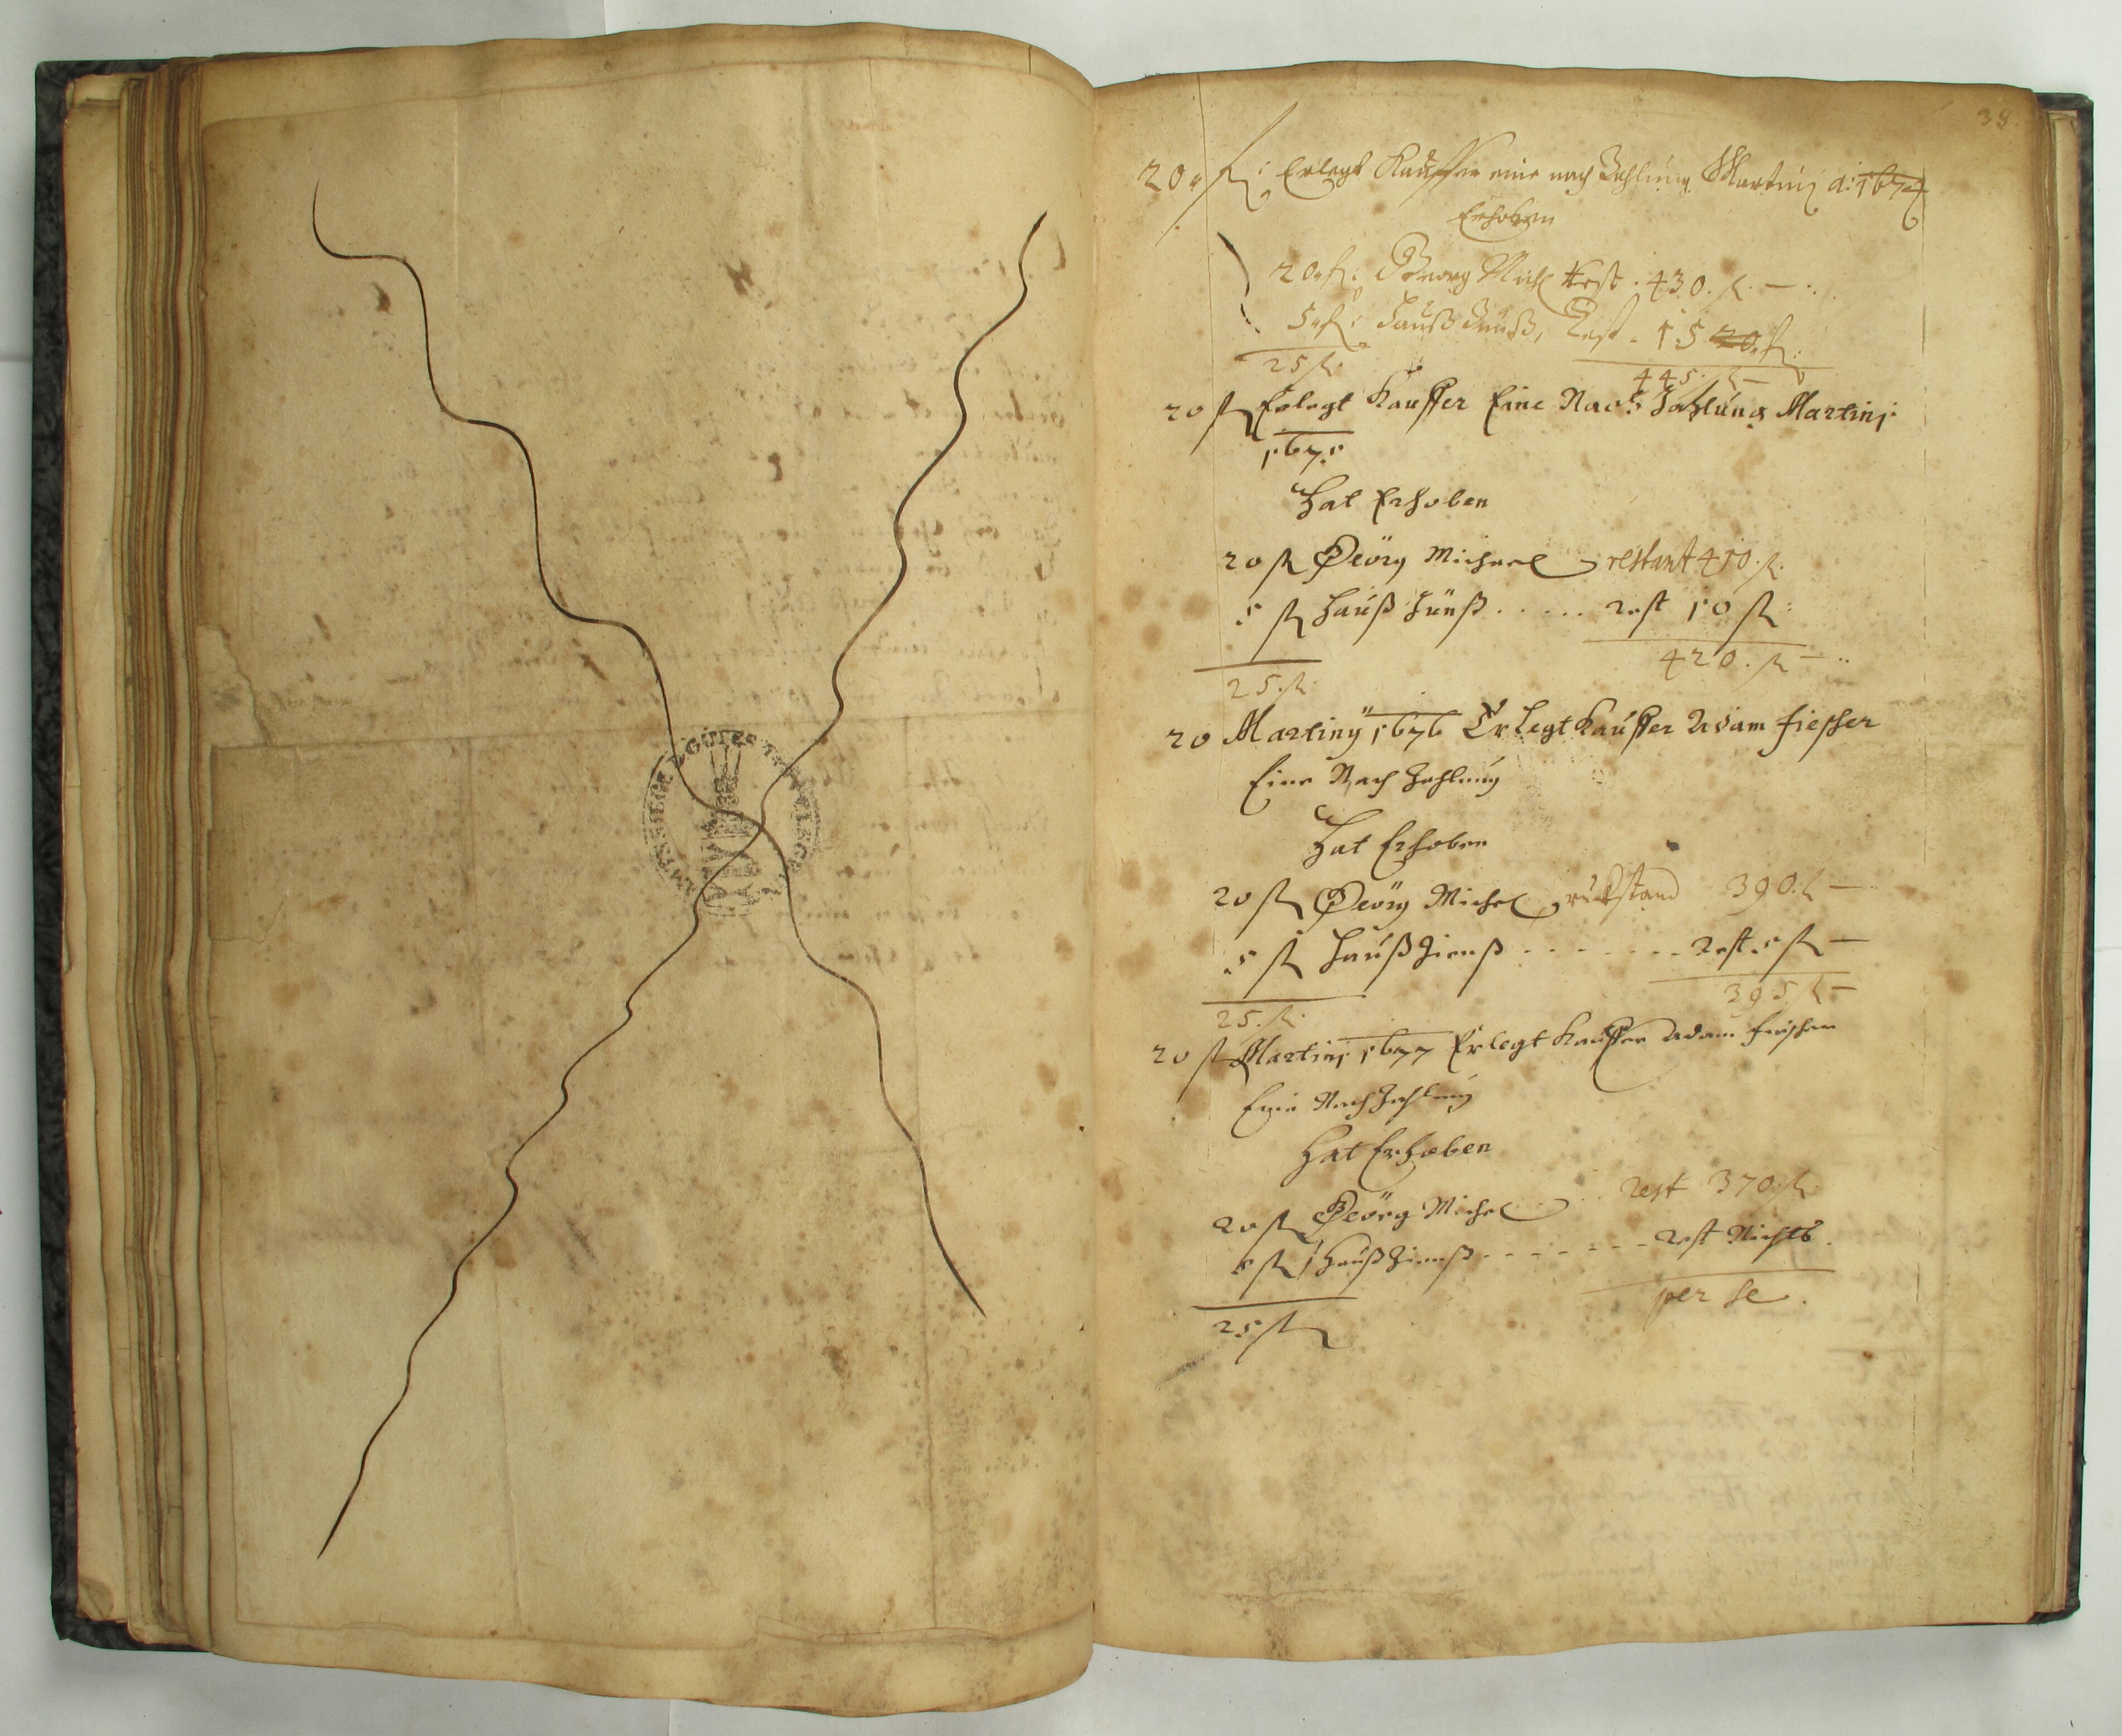 38.
20 fl: Erlegt Kauffer eine nach Zahlung Martinj a: 1674
Erhoben
20 fl: Georg Michl Rest. 430. fl. —
5 fl: Hauß Zinß, Rest. 15 fl:
25 fl. 445. fl —
20 fl Erlegt Kauffer Eine Nach Zahlung Martinj
1675
Hat Erhoben
20 fl Geörg Michael restant 410. fl.
5 fl Hauß Zünß ..... Rest 10 fl:
420. fl —
25. fl.
20 Martiny 1676 Erlegt Kauffer Adam
Eine Nach Zahlung
Hat Erhoben
20 fl Geörg Michel rückstand 390. fl —
5 fl Hauß Zienß ....... Rest 5 fl —
395 fl —
25. fl.
20 fl Martinj 1677 Erlegt Kauffer Adam
Eine Nach Zahlung
Hat Erhoben
20 fl Geörg Michel .. Rest 370. fl.
5 fl Hauß Zienß ....... Rest Nichts.
per se.
25 fl